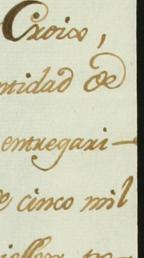 Croix,
ntidad de
entregari-
e cinco mil